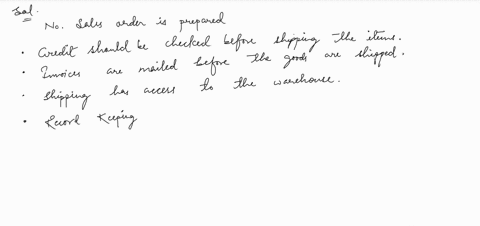 Sol.
No. Sales order is prepared
• Credit should be checked before shipping the items.
• Invoices are mailed before the goods are shipped.
• Shipping has access to the warehouse.
• Record Keeping